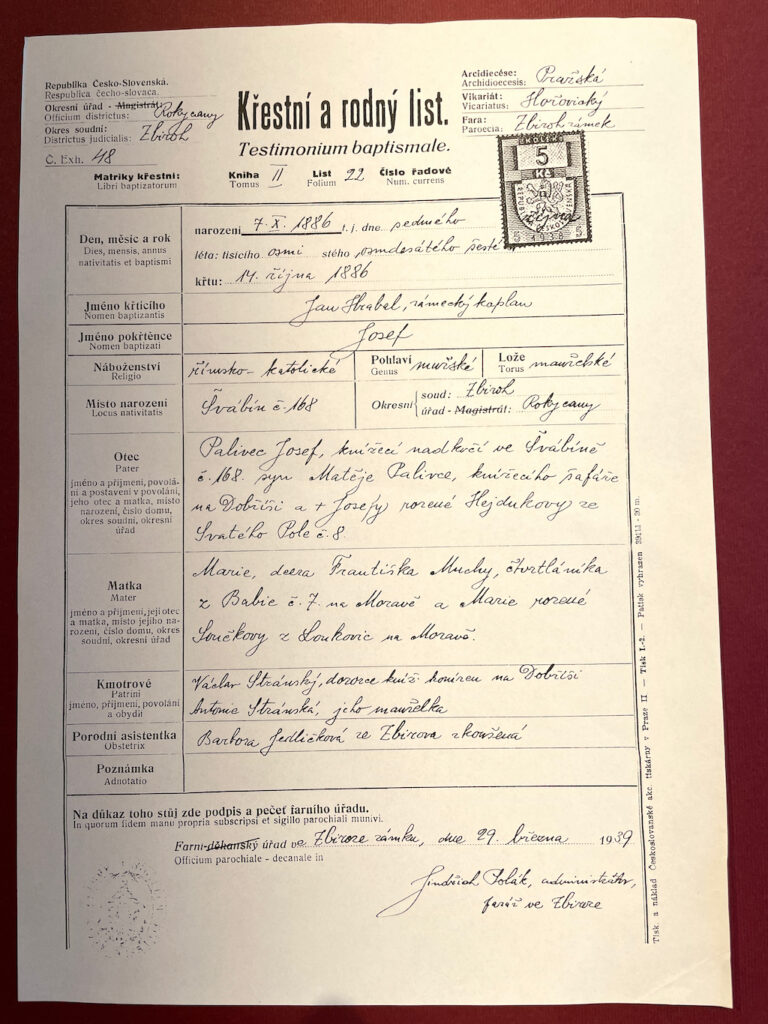 Republika Česko-Slovenská.
Respublica čecho-slovaca.
Okresní úřad - Magistrát: Rokycany
Officium districtus:
Okres soudní: Zbiroh
Districtus judicialis:
Č. Exh. 48
Křestní a rodný list.
Testimonium baptismale.
Arcidiecése: Pražská
Archidioecesis:
Vikariát: Hořovický
Vicariatus:
Fara: Zbiroh zámek
Paroecia:
KOLEK
5
Kč
REPUBLIKA ČESKOSLOVENSKÁ
října
1938
Matriky křestní: Kniha II List 22 Číslo řadové
Libri baptizatorum Tomus Folium Num. currens
Den, měsíc a rok
Dies, mensis, annus
nativitatis et baptismi
narození 7. X. 1886 t. j. dne sedmého
léta: tisícího osmi stého osmdesátého šesté
křtu: 14. října 1886
Jméno křticího Jan Hrabal, zámecký kaplan
Nomen baptizantis
Jméno pokřtěnce Josef
Nomen baptizati
Náboženství římsko-katolické Pohlaví mužské Lože manželské
Religio Genus Torus
Místo narození Švábín č. 168 Okresní soud: Zbiroh
Locus nativitatis úřad - Magistrát: Rokycany
Otec
Pater
jméno a příjmení, povolání a postavení v povolání, jeho otec a matka, místo narození, číslo domu, okres soudní, okresní úřad
Palivec Josef, knížecí nadkočí ve Švábíně
č. 168. syn Matěje Palivce, knížecího šafáře
na Dobříši a + Josefy rozené Hejdukovy ze
Svatého Pole č. 8.
Matka
Mater
jméno a příjmení, její otec a matka, místo jejího narození, číslo domu, okres soudní, okresní úřad
Marie, dcera Františka Muchy, čtvrtláníka
z Babic č. 7. na Moravě a Marie rozené
Součkovy z Loukovic na Moravě.
Kmotrové
Patrini
jméno, příjmení, povolání a obydlí
Václav Stránský, dozorce kníž. komínu na Dobříši
Antonie Stránská, jeho manželka
Porodní asistentka Barbora Jedličková ze Zbirova zkoušená
Obstetrix
Poznámka
Adnotatio
Na důkaz toho stůj zde podpis a pečeť farního úřadu.
In quorum fidem manu propria subscripsi et sigillo parochiali munivi.
Farní-děkanský úřad ve Zbiroze zámku, dne 29. března 1939
Officium parochiale - decanale in
Jindřich Polák, administrátor,
farář ve Zbiroze
Tisk a náklad Československé akc. tiskárny v Praze II — Tisk I.-2. — Patisk vyhrazen